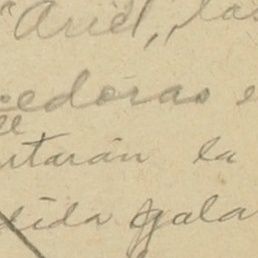 "Ariel", las
cedoras e
utarán la
dida gala